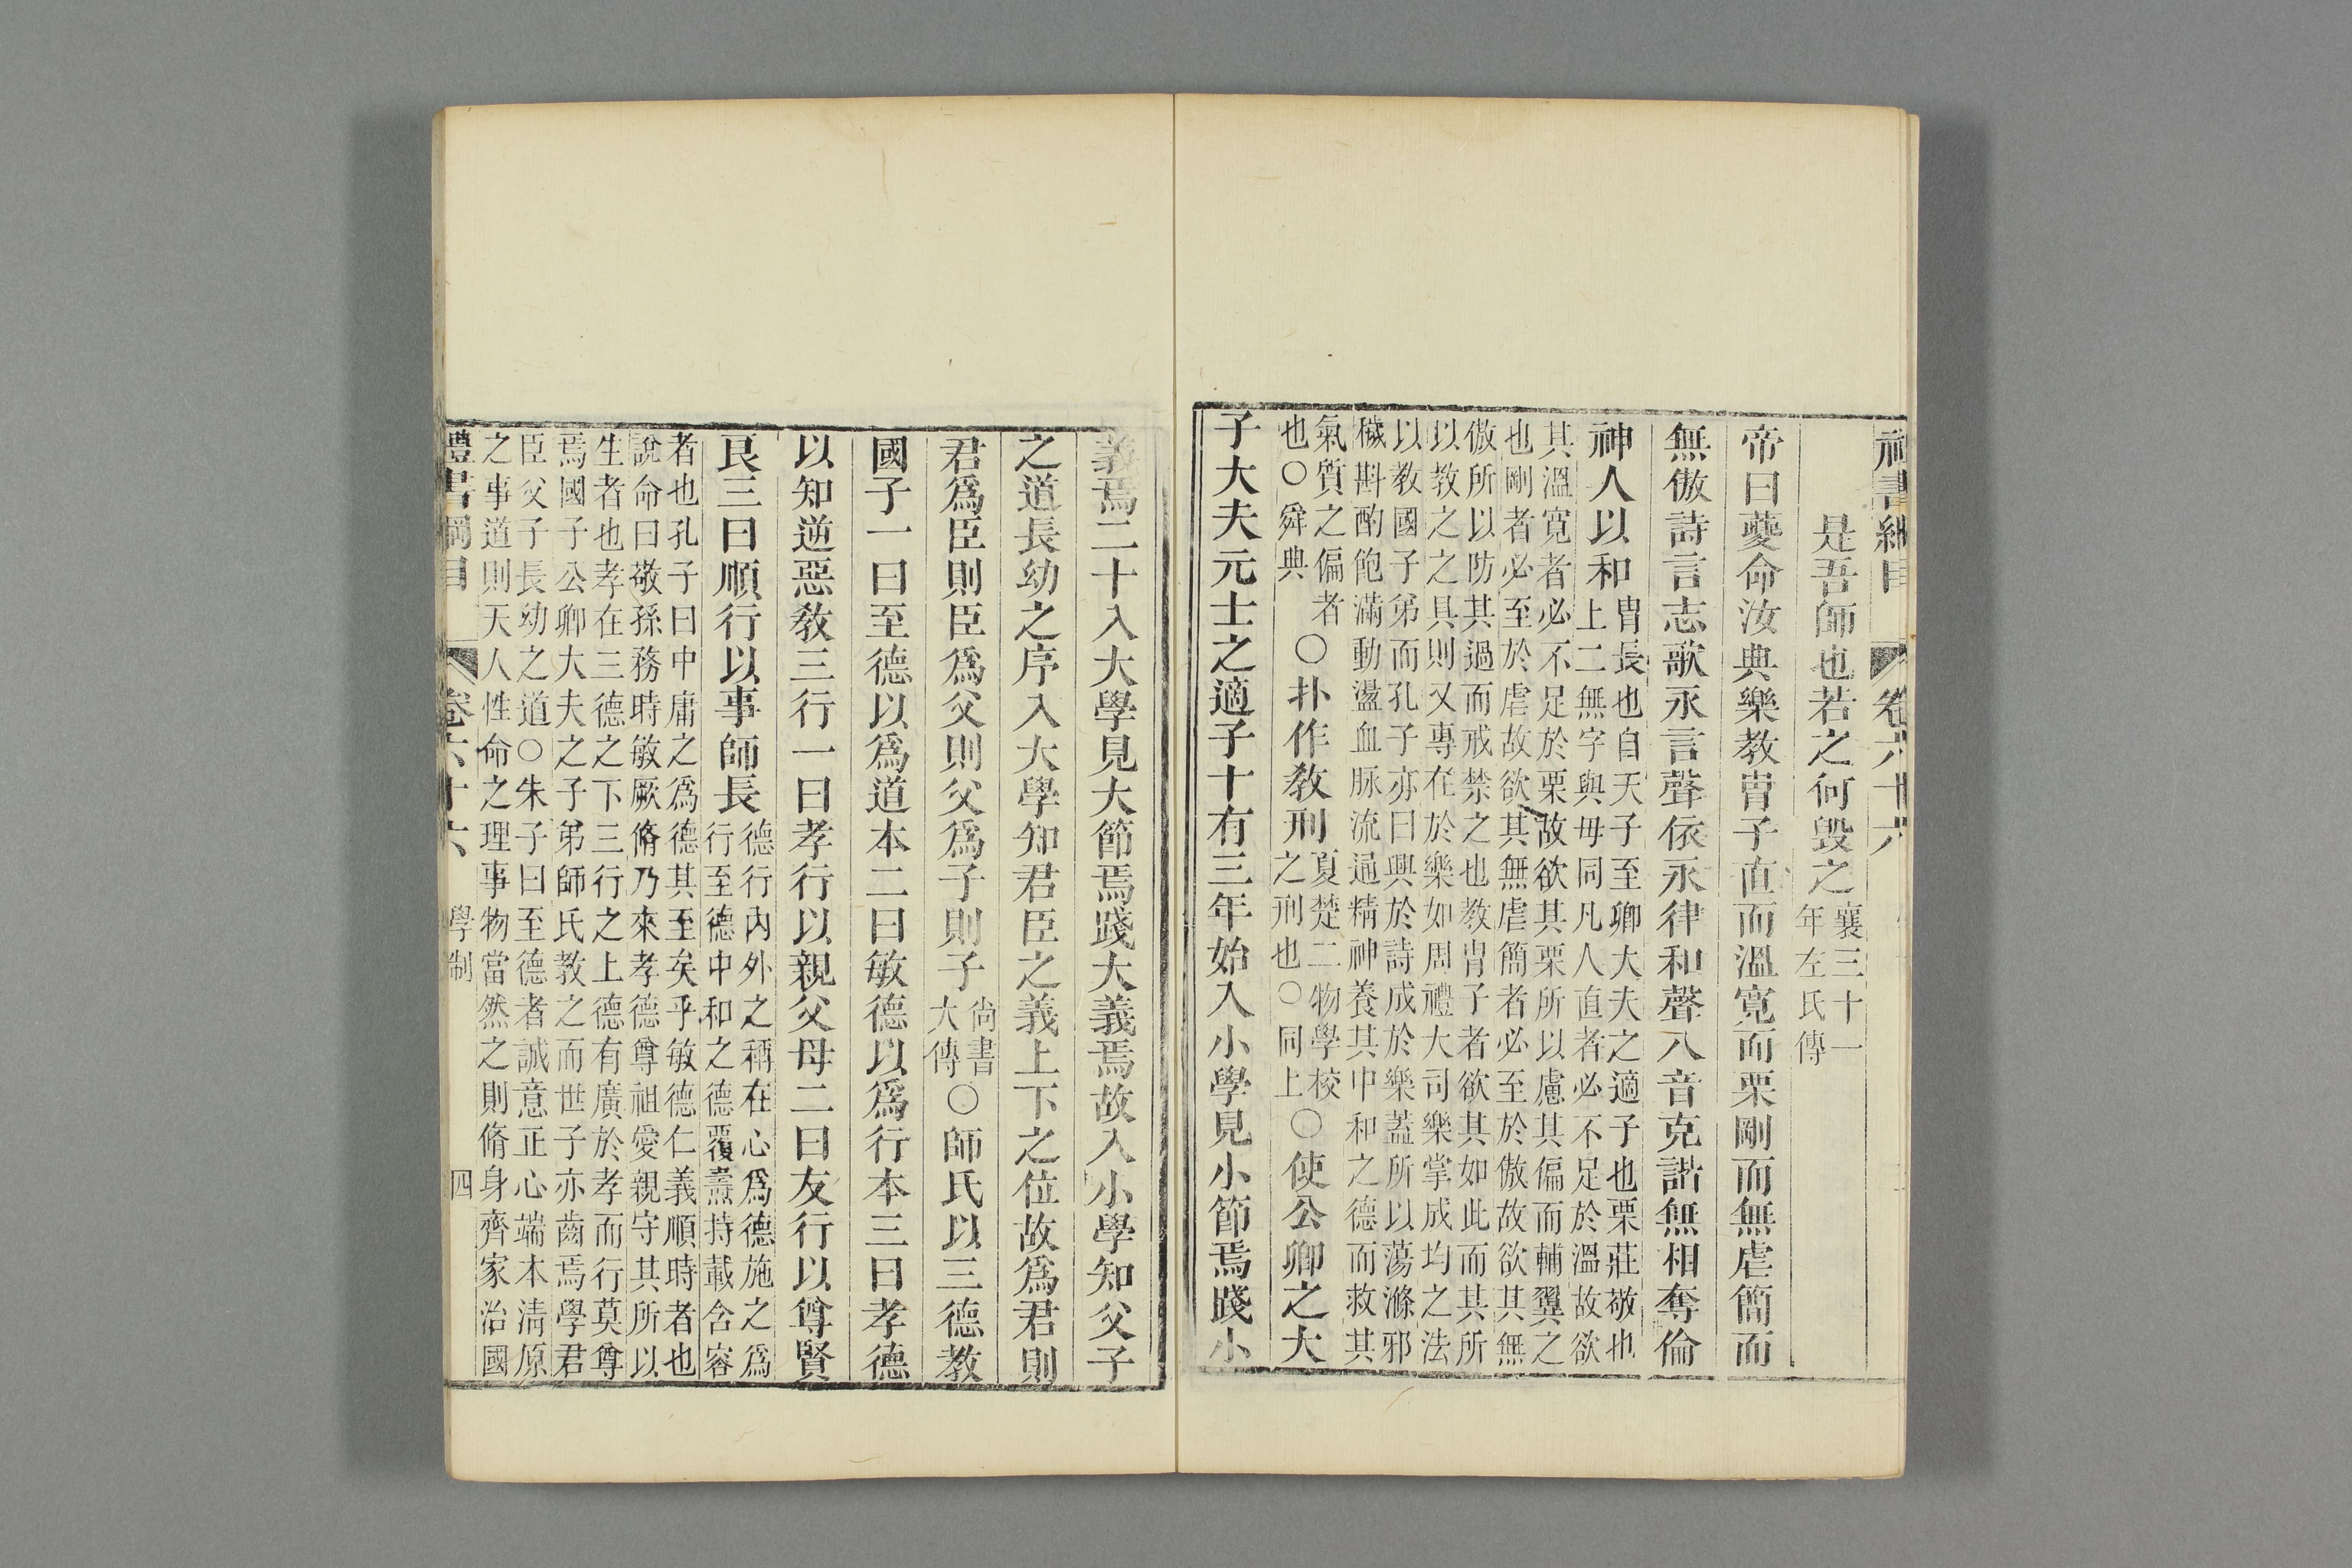 禮書綱目 卷六十六
是吾師也若之何毀之襄三十一
年左氏傳
帝曰夔命汝典樂教冑子直而溫寬而栗剛而無虐簡而
無傲詩言志歌永言聲依永律和聲八音克諧無相奪倫
神人以和冑長也自天子至卿大夫之適子也栗莊敬也
上二無字與毋同凡人直者必不足於溫故欲
其溫寬者必不足於栗故欲其栗所以慮其偏而輔翼之
也剛者必至於虐故欲其無虐簡者必至於傲故欲其無
傲所以防其過而戒禁之也教冑子者欲其如此而其所
以教之之具則又專在於樂如周禮大司樂掌成均之法
以教國子弟而孔子亦曰興於詩成於樂蓋所以蕩滌邪
穢斟酌飽滿動盪血脉流通精神養其中和之德而救其
氣質之偏者
也○舜典
○扑作教刑夏楚二物學校
之刑也○同上
○使公卿之大
子大夫元士之適子十有三年始入小學見小節焉踐小
義焉二十入大學見大節焉踐大義焉故入小學知父子
之道長幼之序入大學知君臣之義上下之位故爲君則
君爲臣則臣爲父則父爲子則子尙書
大傳
○師氏以三德教
國子一曰至德以爲道本二曰敏德以爲行本三曰孝德
以知逆惡教三行一曰孝行以親父母二曰友行以尊賢
良三曰順行以事師長德行內外之稱在心爲德施之爲
行至德中和之德覆燾持載含容
者也孔子曰中庸之爲德其至矣乎敏德仁義順時者也
說命曰敬孫務時敏厥脩乃來孝德尊祖愛親守其所以
生者也孝在三德之下三行之上德有廣於孝而行莫尊
焉國子公卿大夫之子弟師氏教之而世子亦齒焉學君
臣父子長幼之道○朱子曰至德者誠意正心端本淸原
之事道則天人性命之理事物當然之則脩身齊家治國
禮書綱目 卷六十六 學制 四